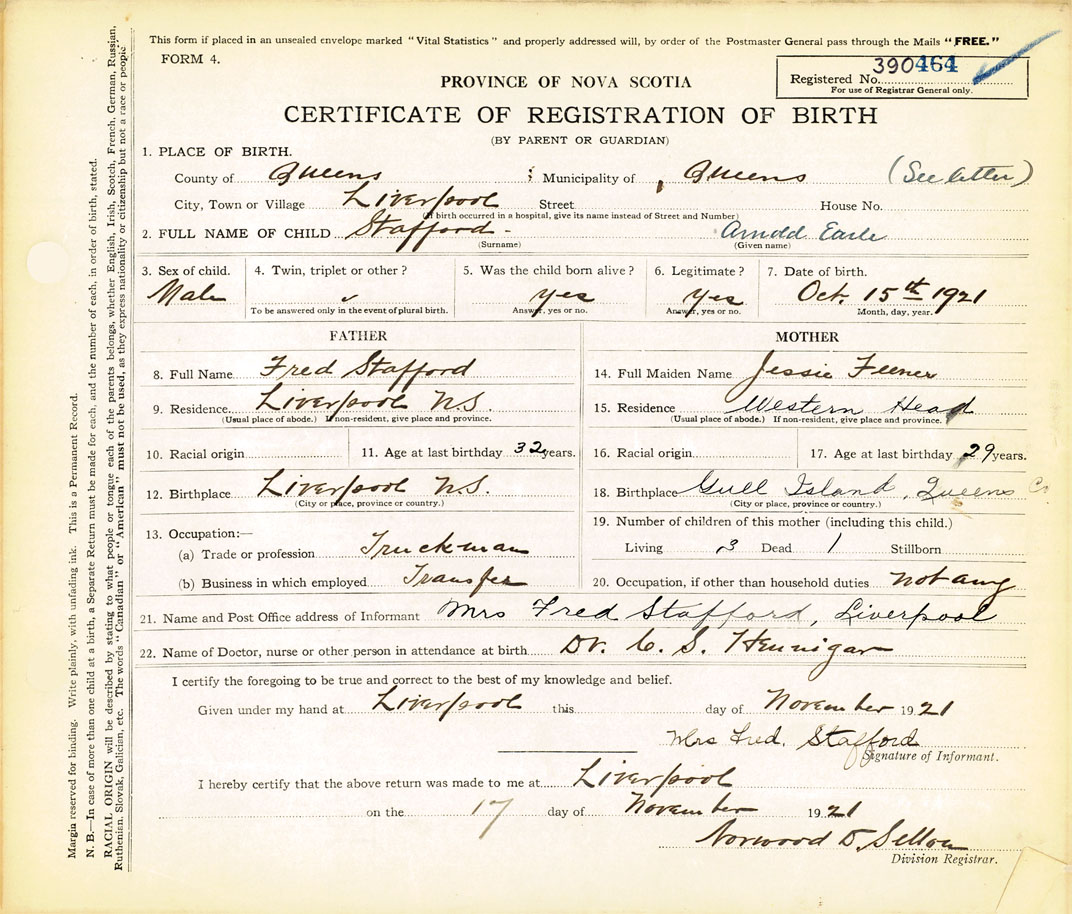 This form if placed in an unsealed envelope marked "Vital Statistics" and properly addressed will, by order of the Postmaster General pass through the Mails "FREE."
FORM 4.
Registered No. 390464
For use of Registrar General only.
PROVINCE OF NOVA SCOTIA
CERTIFICATE OF REGISTRATION OF BIRTH
(BY PARENT OR GUARDIAN)
1. PLACE OF BIRTH.
County of Queens ; Municipality of Queens (See letter)
City, Town or Village Liverpool Street House No.
(If birth occurred in a hospital, give its name instead of Street and Number)
2. FULL NAME OF CHILD Stafford - Arnold Earle
(Surname) (Given name)
3. Sex of child. 4. Twin, triplet or other? 5. Was the child born alive? 6. Legitimate? 7. Date of birth.
Male yes yes Oct. 15th 1921
To be answered only in the event of plural birth. Answer, yes or no. Answer, yes or no. Month, day, year.
FATHER MOTHER
8. Full Name Fred Stafford 14. Full Maiden Name Jessie Feener
9. Residence Liverpool N.S. 15. Residence Western Head
(Usual place of abode.) If non-resident, give place and province. (Usual place of abode.) If non-resident, give place and province.
10. Racial origin 11. Age at last birthday 32 years. 16. Racial origin 17. Age at last birthday 29 years.
12. Birthplace Liverpool N.S. 18. Birthplace Gull Island, Queens Co
(City or place, province or country.) (City or place, province or country.)
13. Occupation:— 19. Number of children of this mother (including this child.)
(a) Trade or profession Truckman Living 3 Dead 1 Stillborn
(b) Business in which employed Transfer 20. Occupation, if other than household duties not any
21. Name and Post Office address of Informant Mrs Fred Stafford, Liverpool
22. Name of Doctor, nurse or other person in attendance at birth Dr. C. S. Hennigar
I certify the foregoing to be true and correct to the best of my knowledge and belief.
Given under my hand at Liverpool this day of November 1921
Mrs Fred. Stafford
Signature of Informant.
I hereby certify that the above return was made to me at Liverpool
on the 17 day of November 1921
Norwood D.
Division Registrar.
Margin reserved for binding. Write plainly, with unfading ink. This is a Permanent Record.
N. B.—In case of more than one child at a birth, a Separate Return must be made for each, and the number of each, in order of birth, stated.
RACIAL ORIGIN will be described by stating to what people or tongue each of the parents belongs, whether English, Irish, Scotch, French, German, Russian,
Ruthenian, Slovak, Galician, etc. The words "Canadian" or "American" must not be used, as they express nationality or citizenship but not a race or people